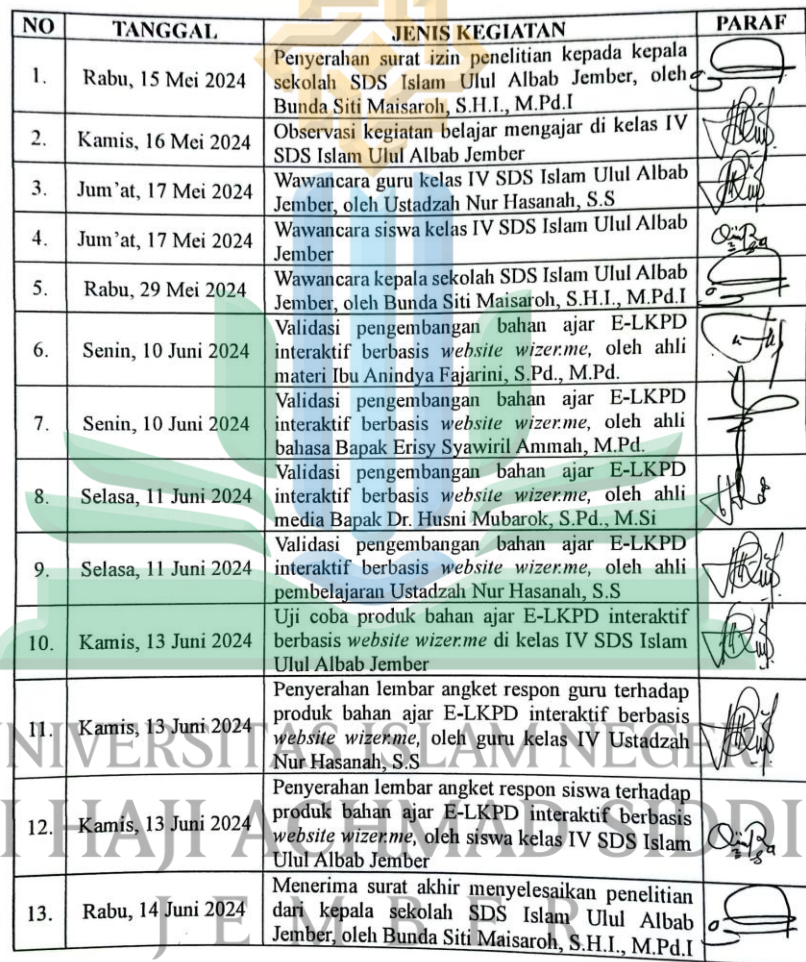 NO TANGGAL JENIS KEGIATAN PARAF
1. Rabu, 15 Mei 2024 Penyerahan surat izin penelitian kepada kepala
sekolah SDS Islam Ulul Albab Jember, oleh
Bunda Siti Maisaroh, S.H.I., M.Pd.I
2. Kamis, 16 Mei 2024 Observasi kegiatan belajar mengajar di kelas IV
SDS Islam Ulul Albab Jember
3. Jum'at, 17 Mei 2024 Wawancara guru kelas IV SDS Islam Ulul Albab
Jember, oleh Ustadzah Nur Hasanah, S.S
4. Jum'at, 17 Mei 2024 Wawancara siswa kelas IV SDS Islam Ulul Albab
Jember
5. Rabu, 29 Mei 2024 Wawancara kepala sekolah SDS Islam Ulul Albab
Jember, oleh Bunda Siti Maisaroh, S.H.I., M.Pd.I
6. Senin, 10 Juni 2024 Validasi pengembangan bahan ajar E-LKPD
interaktif berbasis website wizer.me, oleh ahli
materi Ibu Anindya Fajarini, S.Pd., M.Pd.
7. Senin, 10 Juni 2024 Validasi pengembangan bahan ajar E-LKPD
interaktif berbasis website wizer.me, oleh ahli
bahasa Bapak Erisy Syawiril Ammah, M.Pd.
8. Selasa, 11 Juni 2024 Validasi pengembangan bahan ajar E-LKPD
interaktif berbasis website wizer.me, oleh ahli
media Bapak Dr. Husni Mubarok, S.Pd., M.Si
9. Selasa, 11 Juni 2024 Validasi pengembangan bahan ajar E-LKPD
interaktif berbasis website wizer.me, oleh ahli
pembelajaran Ustadzah Nur Hasanah, S.S
10. Kamis, 13 Juni 2024 Uji coba produk bahan ajar E-LKPD interaktif
berbasis website wizer.me di kelas IV SDS Islam
Ulul Albab Jember
11. Kamis, 13 Juni 2024 Penyerahan lembar angket respon guru terhadap
produk bahan ajar E-LKPD interaktif berbasis
website wizer.me, oleh guru kelas IV Ustadzah
Nur Hasanah, S.S
12. Kamis, 13 Juni 2024 Penyerahan lembar angket respon siswa terhadap
produk bahan ajar E-LKPD interaktif berbasis
website wizer.me, oleh siswa kelas IV SDS Islam
Ulul Albab Jember
13. Rabu, 14 Juni 2024 Menerima surat akhir menyelesaikan penelitian
dari kepala sekolah SDS Islam Ulul Albab
Jember, oleh Bunda Siti Maisaroh, S.H.I., M.Pd.I
NIVERSITAS ISLAM NEGER
I HAJI ACHMAD SIDDI
JEMBER